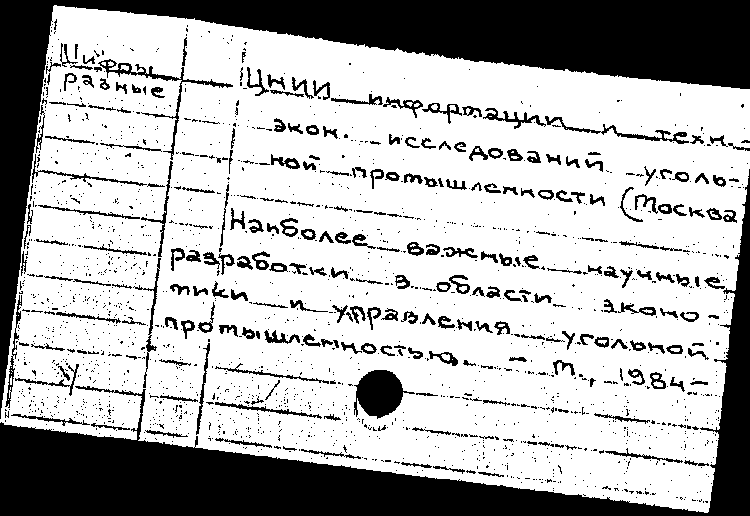 Шифры
разные
ЦНИИ информации и техн.-
экон. исследований уголь-
ной промышленности (Москва
Наиболее важные научные
разработки в области эконо-
мики и управления угольной
промышленностью. - М., 1984-